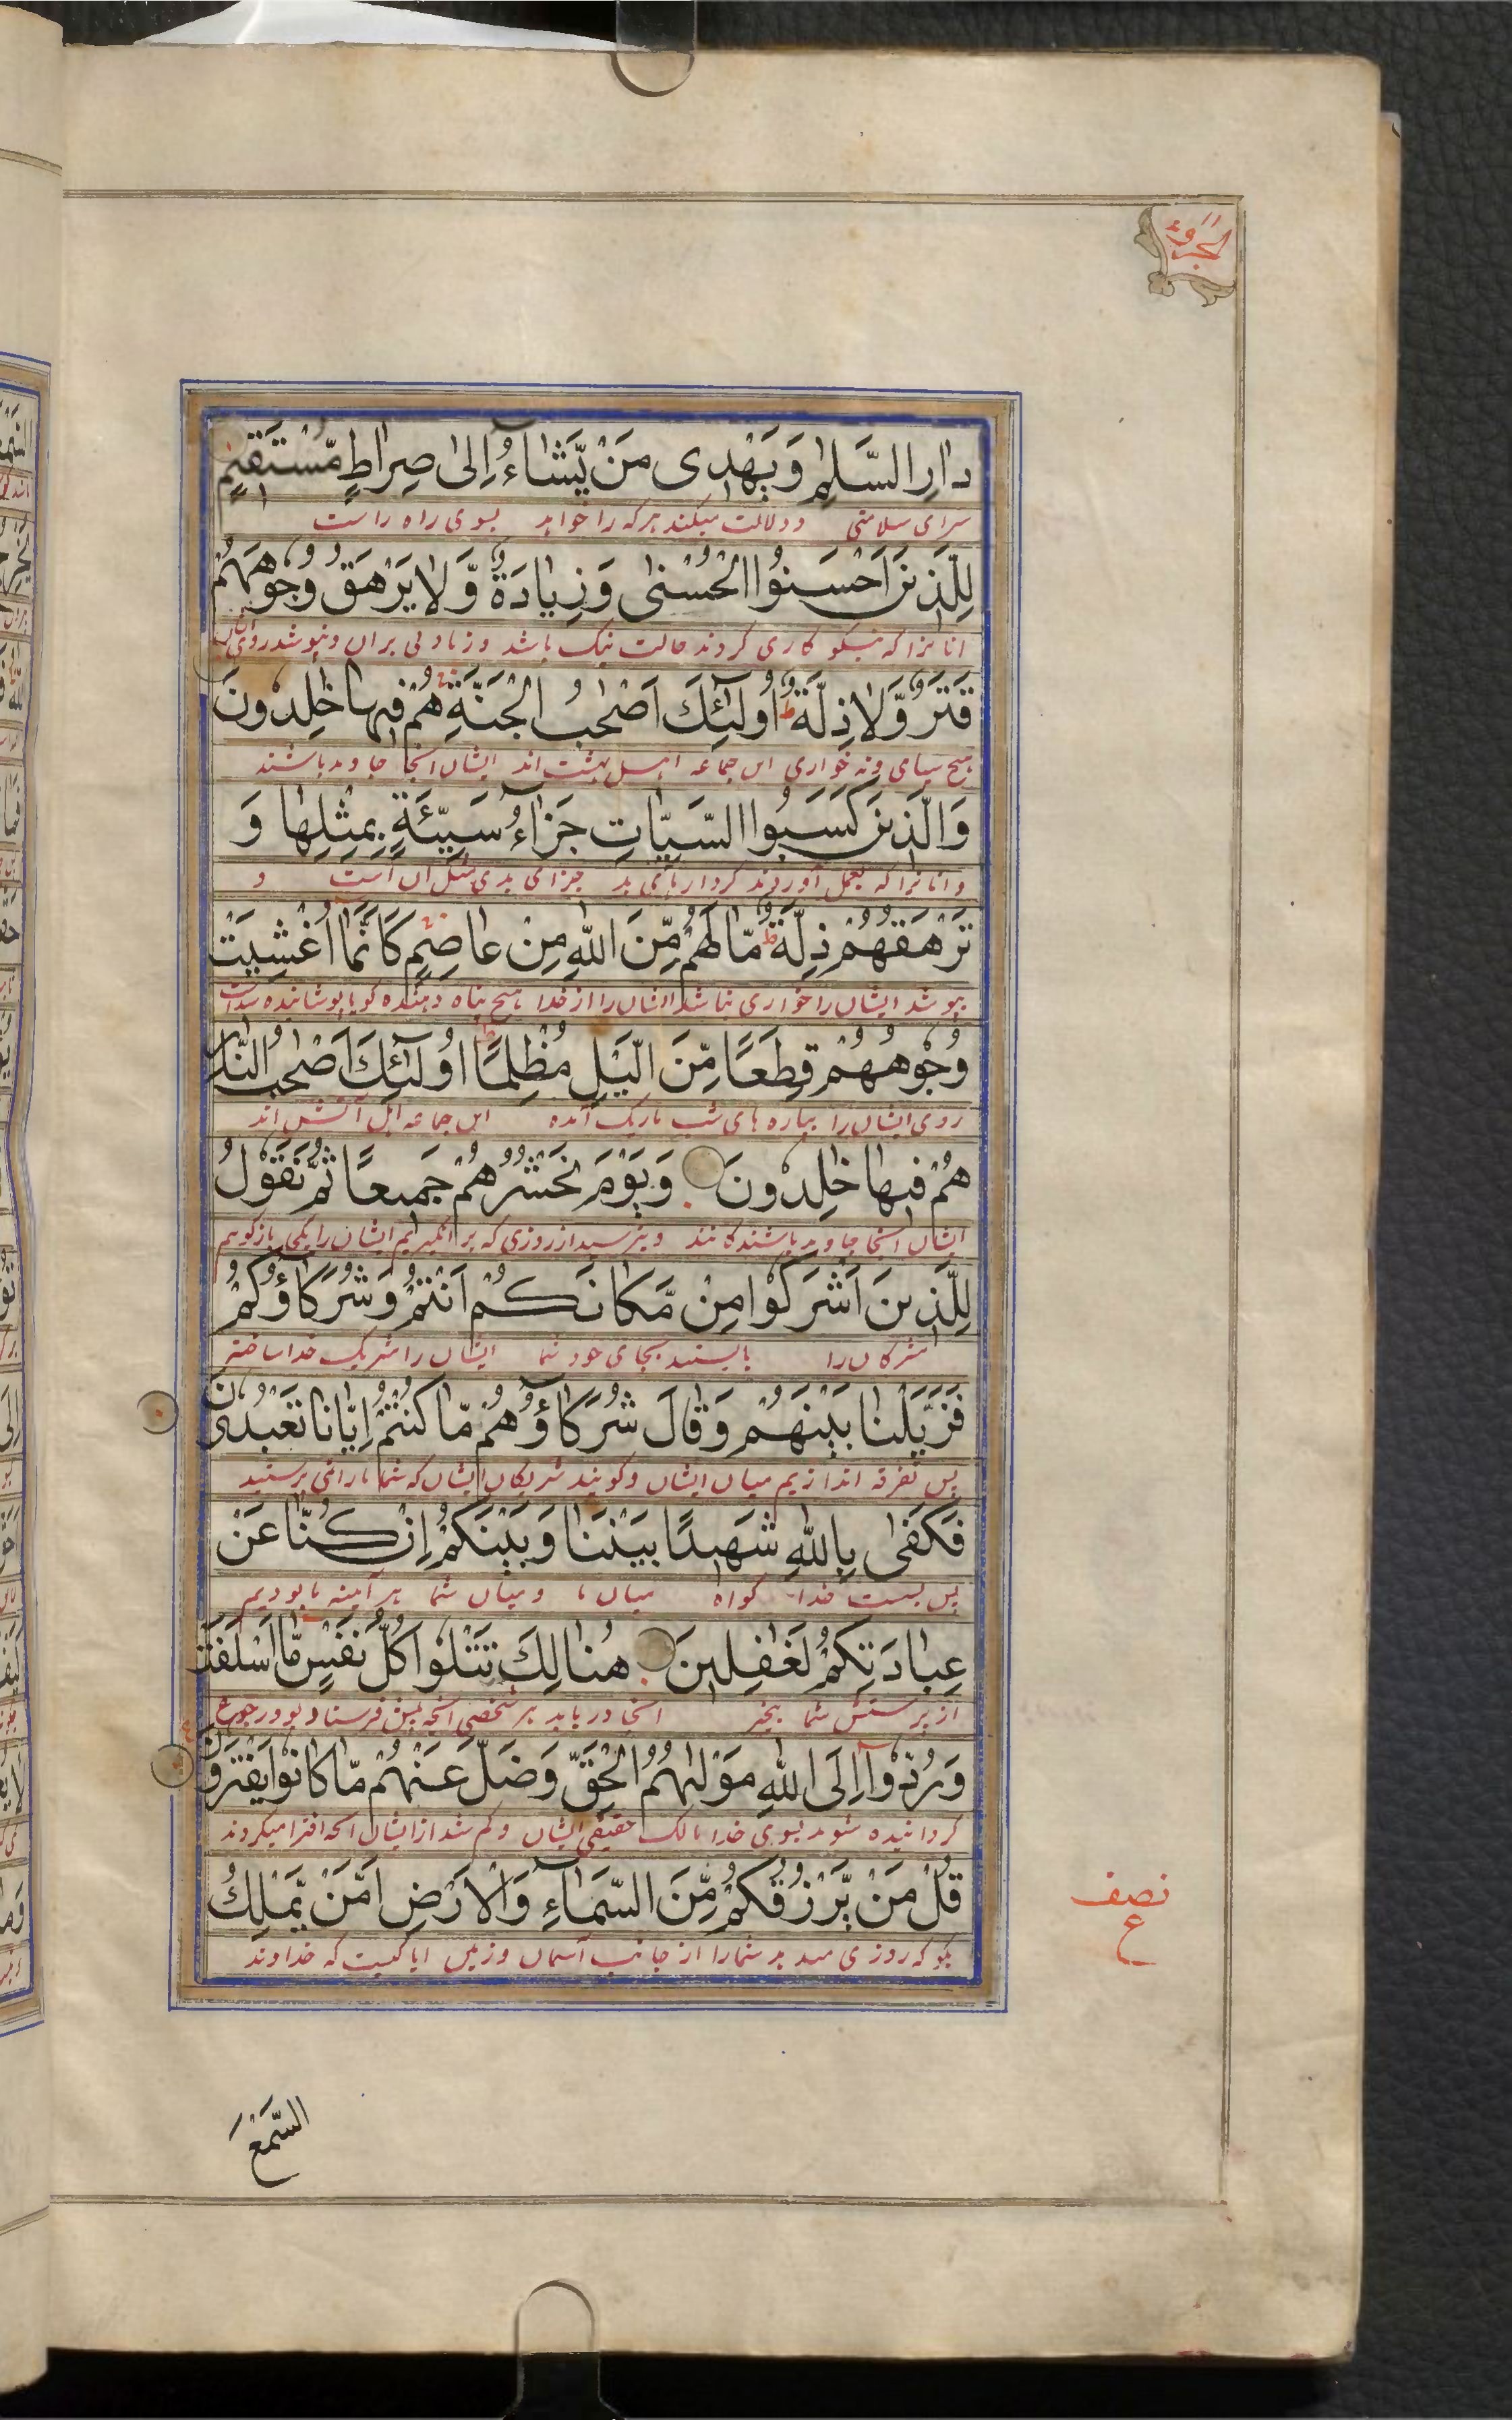 الجزو ١١
دارِ السَّلٰمِ وَيَهْدِى مَنْ يَّشَاءُ اِلٰى صِرَاطٍ مُّسْتَقِيْمٍ
سراى سلامتى ودلالت ميكند هركه را خواهد بسوى راه راست
لِلَّذِيْنَ اَحْسَنُوا الْحُسْنٰى وَزِيَادَةٌ وَّلَا يَرْهَقُ وُجُوْهَهُمْ
انانرا كه نيكو كارى كردند حالت نيك باشد وزيادتى بران ونپوشد روى
قَتَرٌ وَّلَا ذِلَّةٌ ط اُولٰٓئِكَ اَصْحٰبُ الْجَنَّةِ هُمْ فِيْهَا خٰلِدُوْنَ
هيچ سياهى ونه خوارى اين جماعه اهل بهشت اند ايشان انجا جاويد باشند
وَالَّذِيْنَ كَسَبُوا السَّيِّاٰتِ جَزَآءُ سَيِّئَةٍ بِمِثْلِهَا وَ
وانانرا كه بعمل آوردند كردارهاى بد جزاى بدى مثل آن است و
تَرْهَقُهُمْ ذِلَّةٌ ط مَّا لَهُمْ مِّنَ اللّٰهِ مِنْ عَاصِمٍ كَاَنَّمَا اُغْشِيَتْ
بپوشد ايشان را خوارى نباشد ايشان را از خدا هيچ پناه دهنده گويا پوشانيده شده است
وُجُوْهُهُمْ قِطَعًا مِّنَ الَّيْلِ مُظْلِمًا ط اُولٰٓئِكَ اَصْحٰبُ النَّارِ
روى ايشان را بپاره هاى شب تاريك آمده اين جماعه اهل آتش اند
هُمْ فِيْهَا خٰلِدُوْنَ وَيَوْمَ نَحْشُرُهُمْ جَمِيْعًا ثُمَّ نَقُوْلُ
ايشان انجا جاويد باشندگانند وبترسيد از روزى كه برانگيزيم ايشان را يكجا بازگوييم
لِلَّذِيْنَ اَشْرَكُوْا مِنْ مَّكَانَكُمْ اَنْتُمْ وَشُرَكَاؤُكُمْ
مشركان را بايستيد بجاى خود شما ايشان را شريك خدا ساخته
فَزَيَّلْنَا بَيْنَهُمْ وَقَالَ شُرَكَآؤُهُمْ مَّا كُنْتُمْ اِيَّانَا تَعْبُدُوْنَ
پس تفرقه اندازيم ميان ايشان وگويند شريكان ايشان كه شما ما را نمى پرستيد
فَكَفٰى بِاللّٰهِ شَهِيْدًا بَيْنَنَا وَبَيْنَكُمْ اِنْ كُنَّا عَنْ
پس بست خدا گواه ميان ما وميان شما هر آئينه ما بوديم
عِبَادَتِكُمْ لَغٰفِلِيْنَ هُنَالِكَ تَتْلُوْا كُلُّ نَفْسٍ مَّا اَسْلَفَتْ
از پرستش شما بيخبر انجا دريابد هر شخصى انچه پيش فرستاده بود
وَرُدُّوْا اِلَى اللّٰهِ مَوْلٰىهُمُ الْحَقِّ وَضَلَّ عَنْهُمْ مَّا كَانُوْا يَفْتَرُوْنَ
گردانيده شوند بسوى خدا مالك حقيقى ايشان وگم شد از ايشان انچه افترا ميكردند
قُلْ مَنْ يَّرْزُقُكُمْ مِّنَ السَّمَآءِ وَالْاَرْضِ اَمَّنْ يَّمْلِكُ
بگو كه روزى ميدهد شما را از جانب آسمان وزمين ايا كيست كه خداوند
نصف
ع
السَّمْعَ